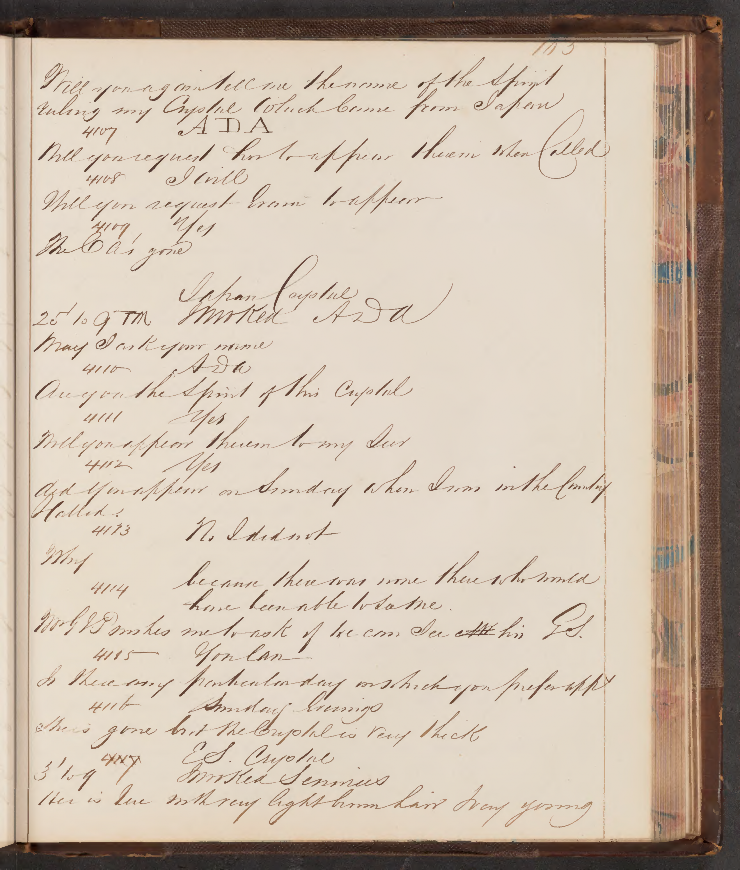 183
Will you again tell me the name of the Spirit
ruling my Crystal which Came from Japan
4107 ADA
Will you request her to appear therein when Called
4108 I will
Will you request to appear
4109 Yes
The C A is gone
Japan Crystal
25' to 9 PM Invoked ADA
May I ask your name
4110 ADA
Are you the Spirit of this Crystal
4111 Yes
Will you appear therein to my Seer
4112 Yes
did you appear on Sunday when I was in the Country
& Called
4113 No I did not
Why
4114 because there was none there who would
have been able to see me.
Mr wishes me to ask if he can See his G.S.
4115 You Can
Is there any particular day on which you prefer app^g
4116 Sunday Evenings
She is gone but the Crystal is very thick
4117 E S. Crystal
3' to 9 Invoked
He is here with very light brown hair & very young